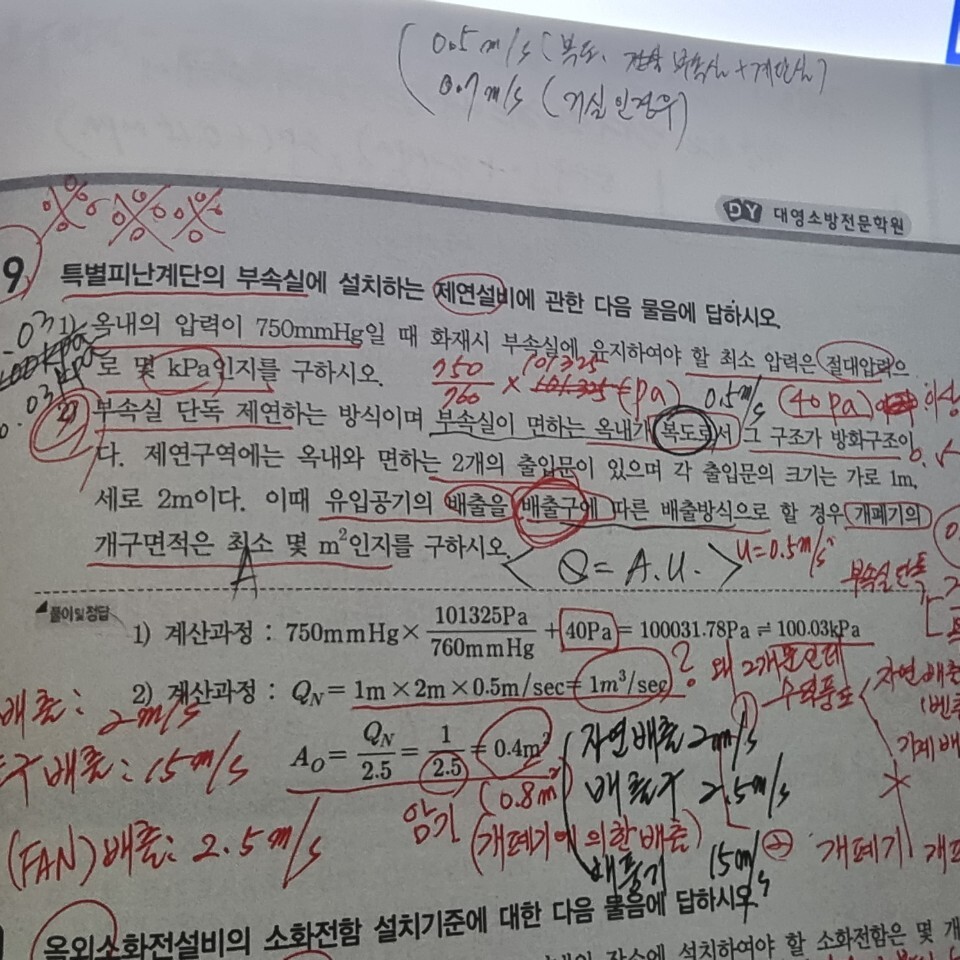 0.5 m/s (복도, 부속실 + 계단실)
0.7 m/s (거실인경우)
DY 대영소방전문학원
9 특별피난계단의 부속실에 설치하는 제연설비에 관한 다음 물음에 답하시오.
1) 옥내의 압력이 750mmHg일 때 화재시 부속실에 유지하여야 할 최소 압력은 절대압력으
로 몇 kPa인지를 구하시오.
750/760 × 101325 (pa) 0.5m/s (40pa) 이상
2) 부속실 단독 제연하는 방식이며 부속실이 면하는 옥내가 복도로서 그 구조가 방화구조이
다. 제연구역에는 옥내와 면하는 2개의 출입문이 있으며 각 출입문의 크기는 가로 1m,
세로 2m이다. 이때 유입공기의 배출을 배출구에 따른 배출방식으로 할 경우 개폐기의
개구면적은 최소 몇 m²인지를 구하시오.
A <Q = A.U.> U=0.5m/s
부속실 단독
풀이 및 정답
1) 계산과정 : 750mmHg × 101325Pa/760mmHg + 40Pa = 100031.78Pa ≒ 100.03kPa
2) 계산과정 : Q_N = 1m × 2m × 0.5m/sec = 1m³/sec ? 왜 2개문인데
수직풍도
자연배출
배출: 2m/s
A_O = Q_N/2.5 = 1/2.5 = 0.4m²
자연배출 2m/s
구 배출: 15m/s
배출구 2.5m/s
암기 (0.8m²
(개폐기에 의한 배출)
(FAN) 배출: 2.5m/s
배출기 15m/s
개폐기
옥외소화전설비의 소화전함 설치기준에 대한 다음 물음에 답하시오.
설치하여야 할 소화전함은 몇 개